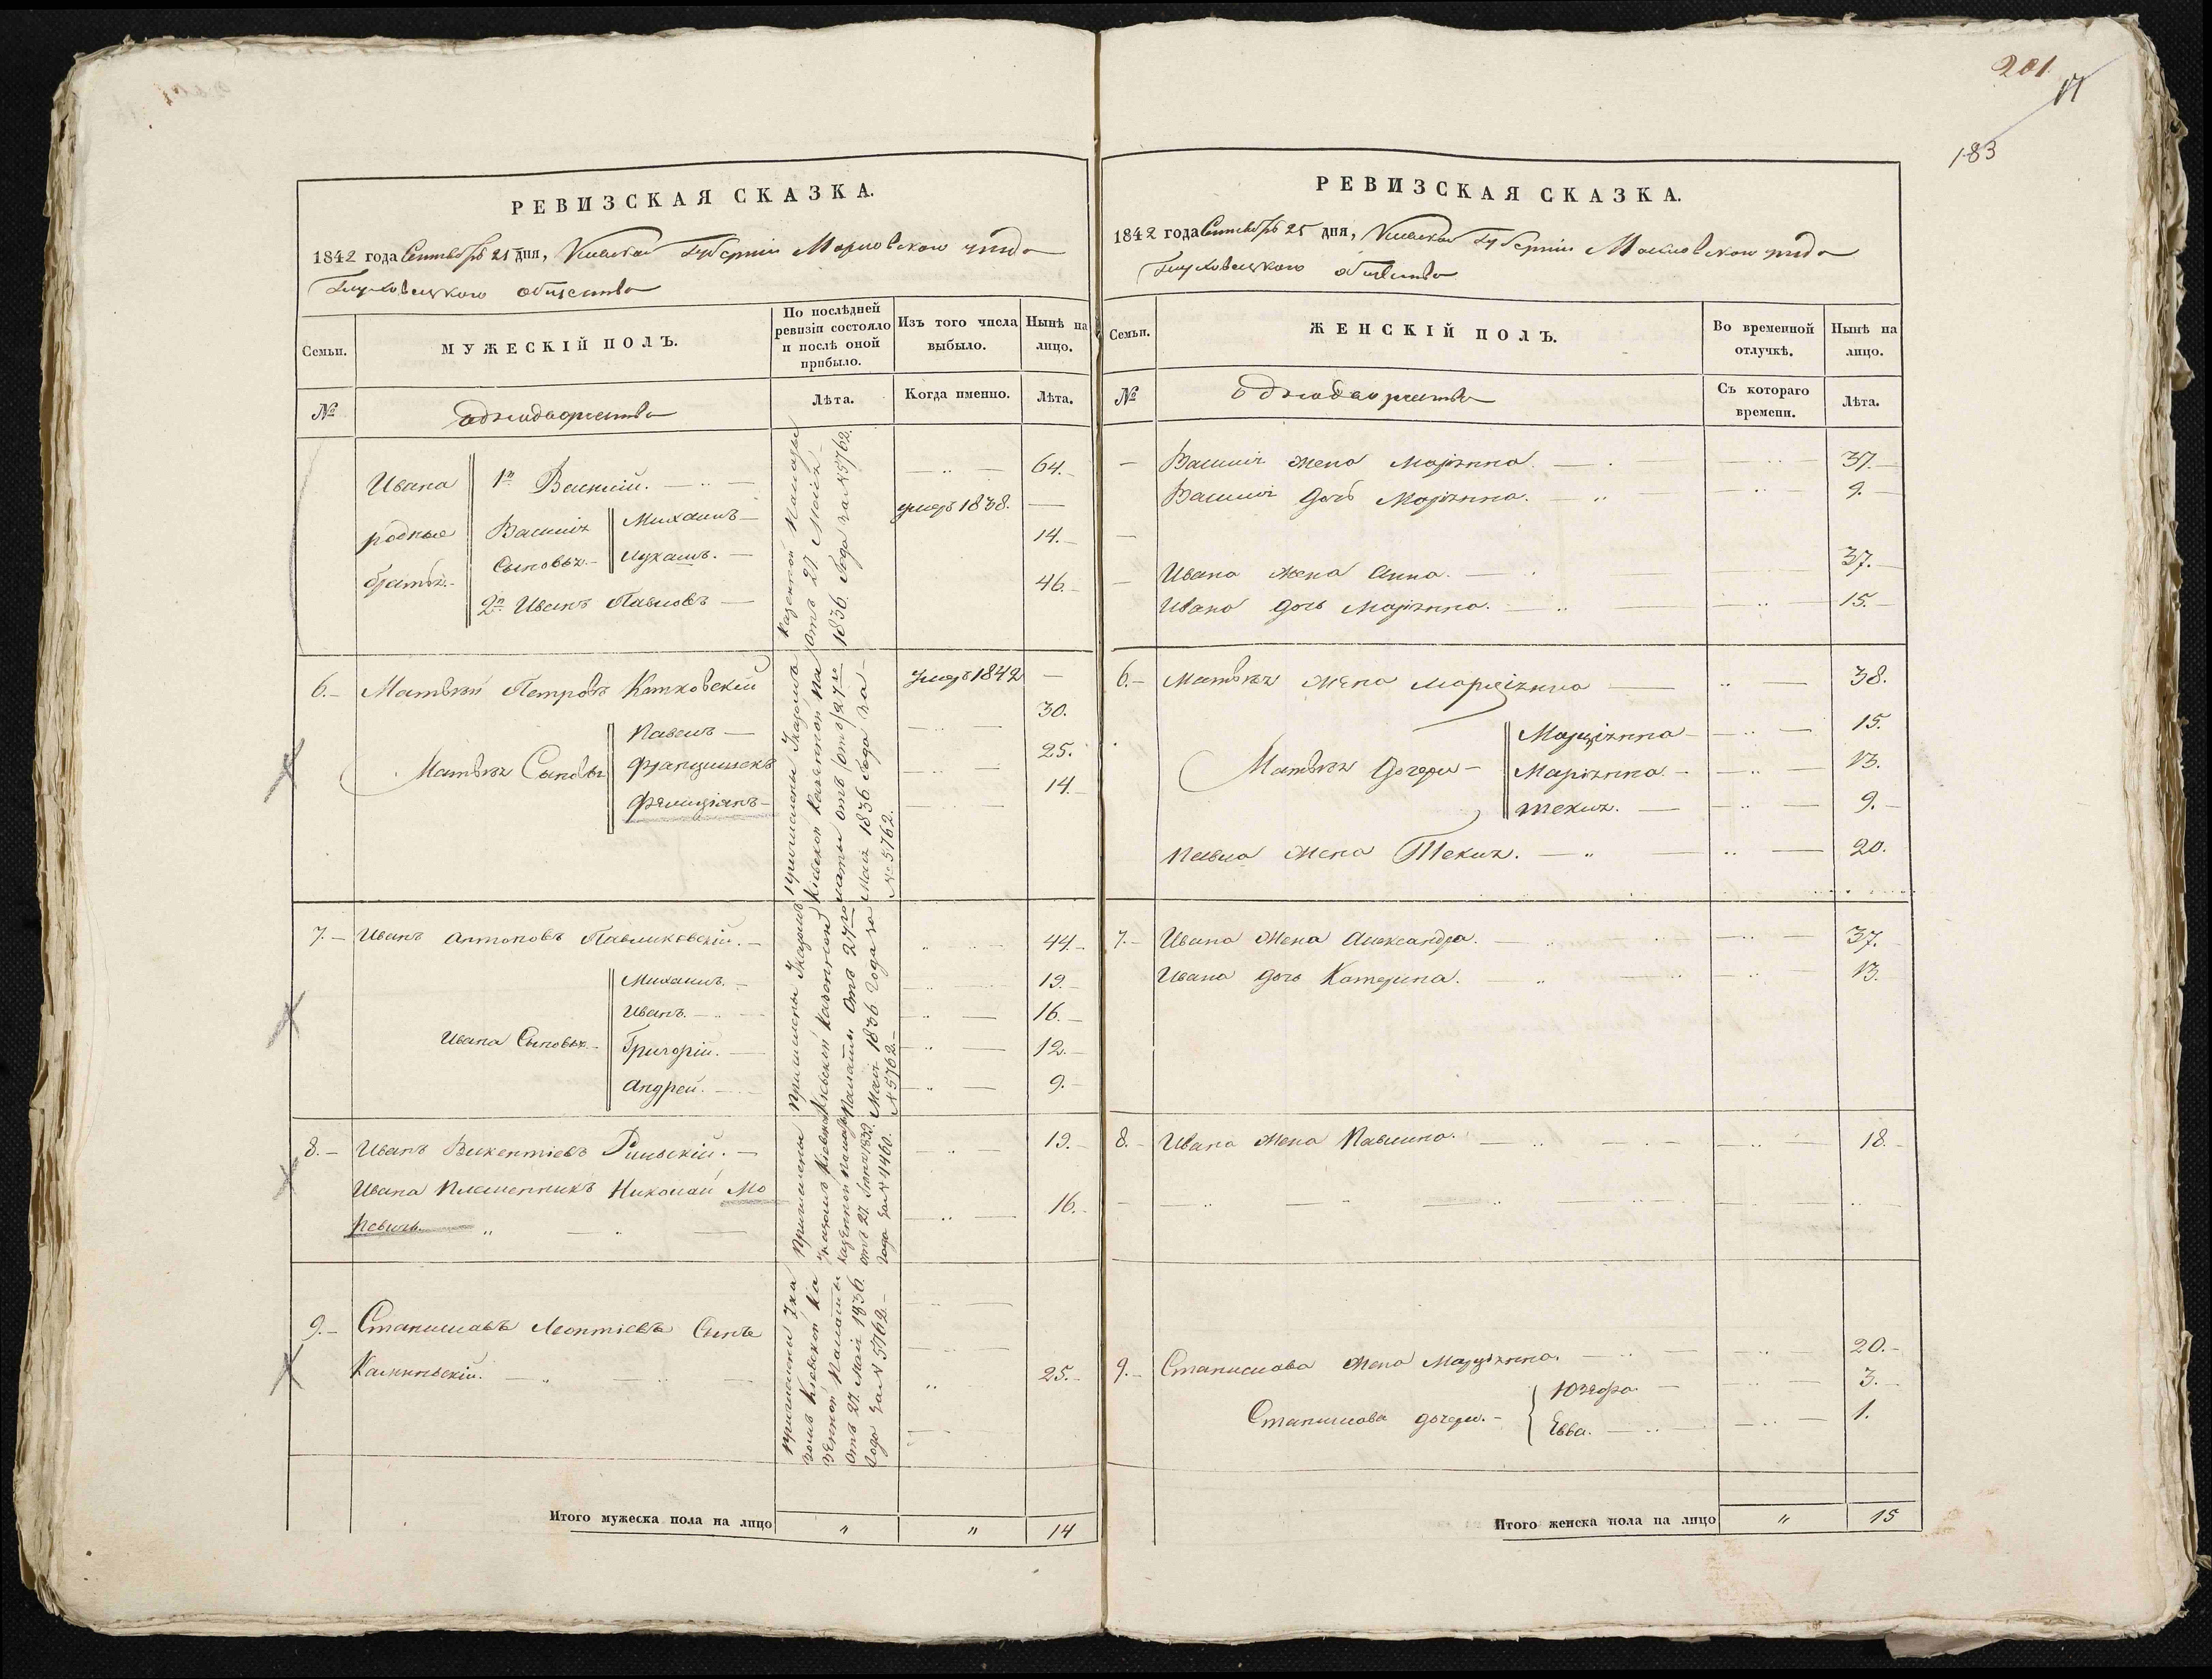 201.
183
РЕВИЗСКАЯ СКАЗКА.
1842 года Сентября 25 дня, Киевской Губерніи Махновскаго уезда
Глуховецкаго общества
Семьи.
МУЖЕСКІЙ ПОЛЪ.
По послѣдней ревизіи состояло и послѣ оной прибыло.
Изъ того числа выбыло.
Нынѣ на лицо.
№
однодворчества
Лѣта.
Когда именно.
Лѣта.
Ивана родные братья.
1й Василій. 64.
Василія Сыновья.
Михаилъ умеръ 1838.
Лукашъ. 14.
2й Иванъ Павловъ 46.
Казенной Палаты
отъ 27 Маія
1836 Года за № 5762.
6. Матвѣй Петровъ Котковскій умеръ 1842
Матвѣя Сыновья
Павелъ 30.
Францишекъ 25.
Фелиціянъ 14.
Причислены Указомъ
Кіевской Казенной Па
латы отъ 27го
Маія 1836 Года за
№ 5762.
7. Иванъ Антоновъ Павликовскій. 44.
Ивана Сыновья.
Михаилъ. 19.
Иванъ. 16.
Григорій. 12.
Андрей. 9.
Причислены Указомъ
Кіевской Казенной
Палаты отъ 27го
Маія 1836 Года за
№ 5762.
8. Иванъ Викентіевъ Рильскій. 19.
Ивана Племенникъ Николай Мо 16.
невичь.
Причислены
Указомъ Кіевской
Казенной Палаты
отъ 27 1839.
Года за № 4460.
9. Станиславъ Леонтіевъ Сынъ
Калиньскій. 25.
Причислены Ука
зомъ Кіевской Ка
зенной Палаты
отъ 27. Маія 1836.
Года за № 5762.
Итого мужеска пола на лицо " " 14
РЕВИЗСКАЯ СКАЗКА.
1842 года Сентября 25 дня, Киевской Губерніи Махновскаго уезда
Глуховецкаго общества
Семьи.
ЖЕНСКІЙ ПОЛЪ.
Во временной отлучкѣ.
Нынѣ на лицо.
№
однодворчества
Съ котораго времени.
Лѣта.
Василія жена Маріянна. 37.
Василія дочь Маріянна. 9.
Ивана жена Анна. 37.
Ивана дочь Маріянна. 15.
6. Матвѣя жена Марціянна 38.
Матвѣя Дочери
Марціянна 15.
Маріянна 13.
Текля. 9.
Павла жена Текля. 20.
7. Ивана жена Александра. 37.
Ивана дочь Катерина. 13.
8. Ивана жена Павлина. 18.
9. Станислава жена Марціянна. 20.
Станислава дочери.
Юзефа 3.
Евва. 1.
Итого женска пола на лицо " 15